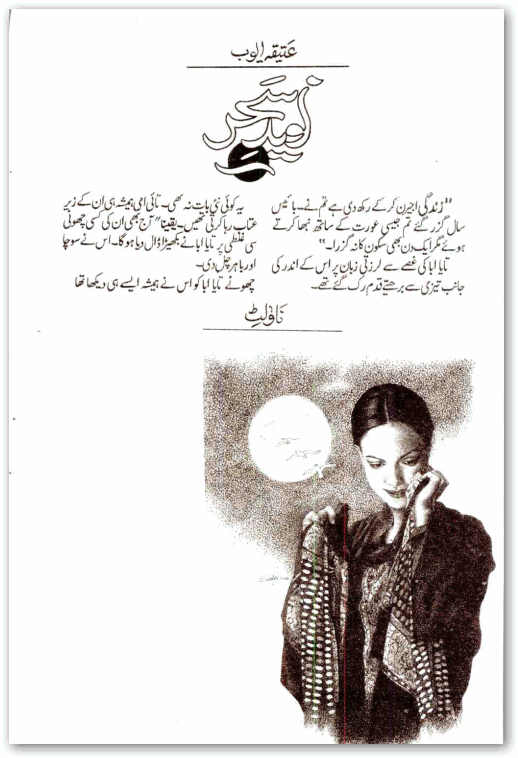 عتیقہ ایوب
نوید سحر
"زندگی اجیرن کر کے رکھ دی ہے تم نے۔ بائیس
سال گزر گئے تم جیسی عورت کے ساتھ نبھا کرتے
ہوئے مگر ایک دن بھی سکون کا نہ گزرا۔"
تایا ابا کی غصے سے لرزتی زبان پر اس کے اندر کی
جانب تیزی سے بڑھتے قدم رک گئے تھے۔
یہ کوئی نئی بات نہ تھی۔ تائی امی ہمیشہ ہی ان کے زیر
عتاب رہا کرتی تھیں۔ یقیناً آج بھی ان کی کسی چھوٹی
سی غلطی پر تایا ابا نے بکھیڑا ڈال دیا ہوگا۔ اس نے سوچا
اور باہر چل دی۔
چھوٹے تایا ابا کو اس نے ہمیشہ ایسے ہی دیکھا تھا
ناولٹ